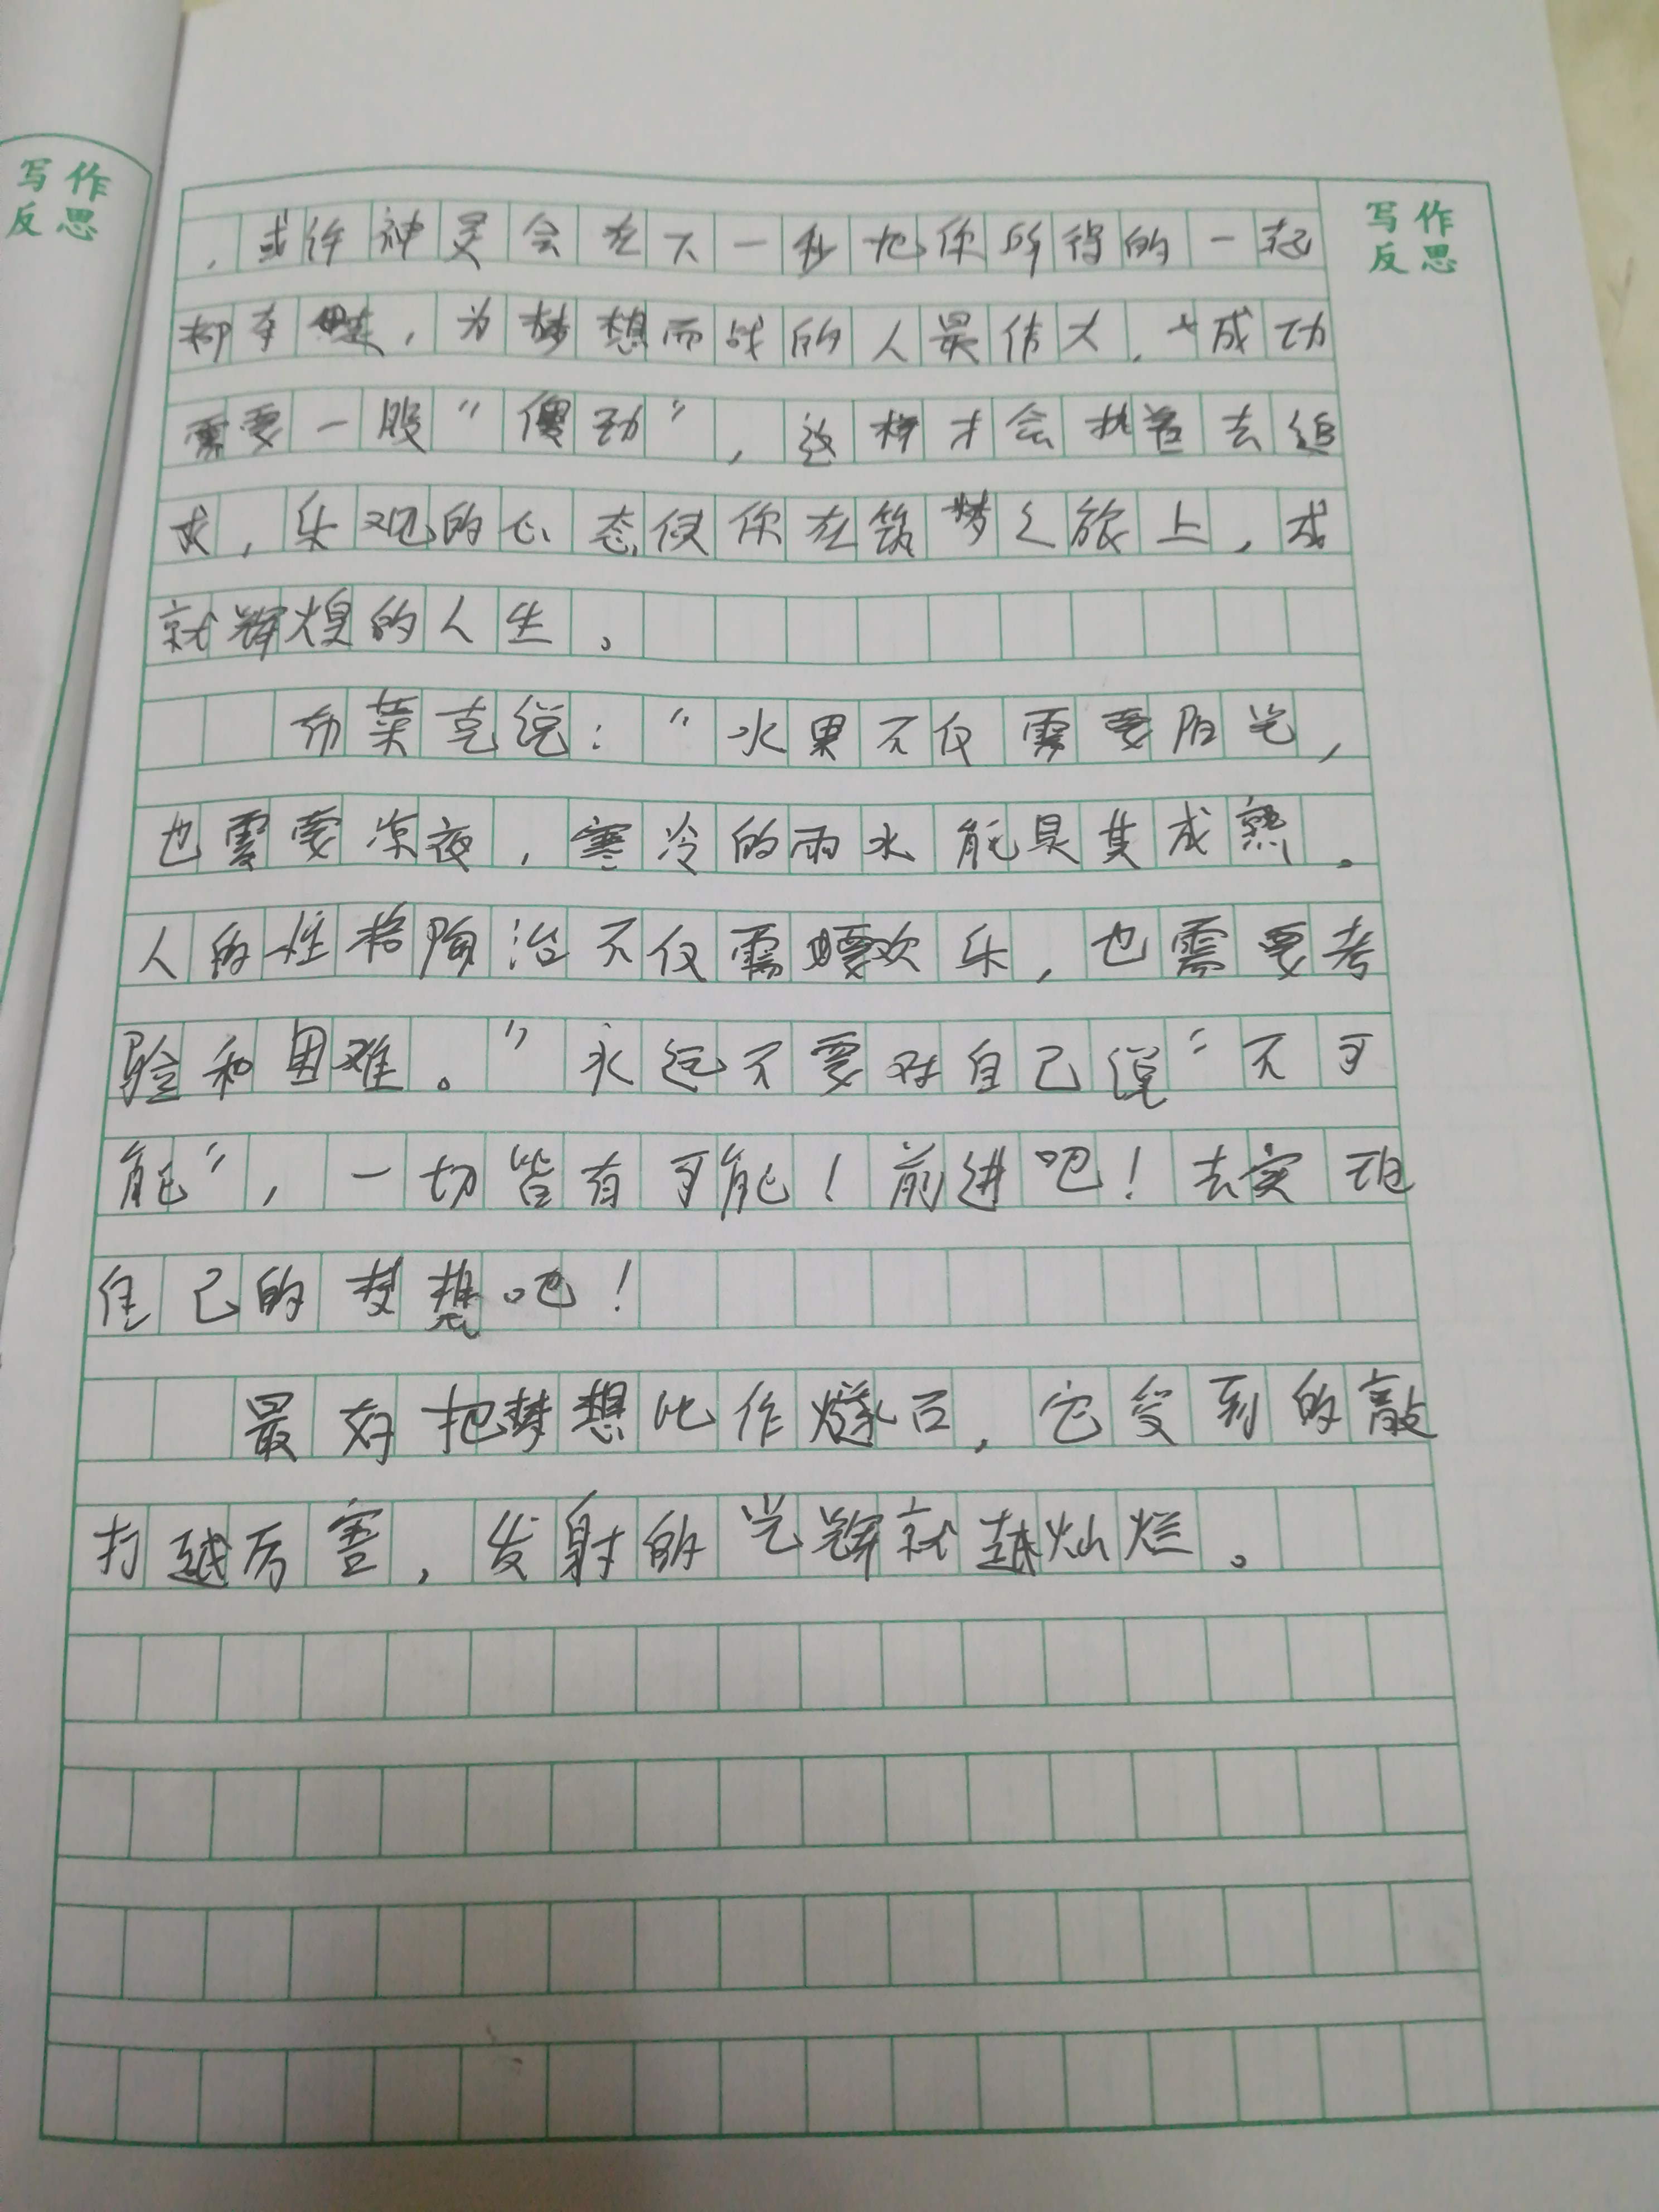 写作
反思
写作
反思
，或许神灵会在下一秒把你所得的一起
都夺走，为梦想而战的人最伟大，成功
需要一股“傻劲”，这样才会执着去追
求，乐观的心态使你在筑梦之旅上，成
就辉煌的人生。
布莱克说：“水果不仅需要阳光，
也需要凉夜，寒冷的雨水能是其成熟。
人的性格陶冶不仅需要欢乐，也需要考
验和困难。”永远不要对自己说“不可
能”，一切皆有可能！前进吧！去实现
自己的梦想吧！
最好把梦想比作燧石，它受到的敲
打越厉害，发射的光辉就越灿烂。